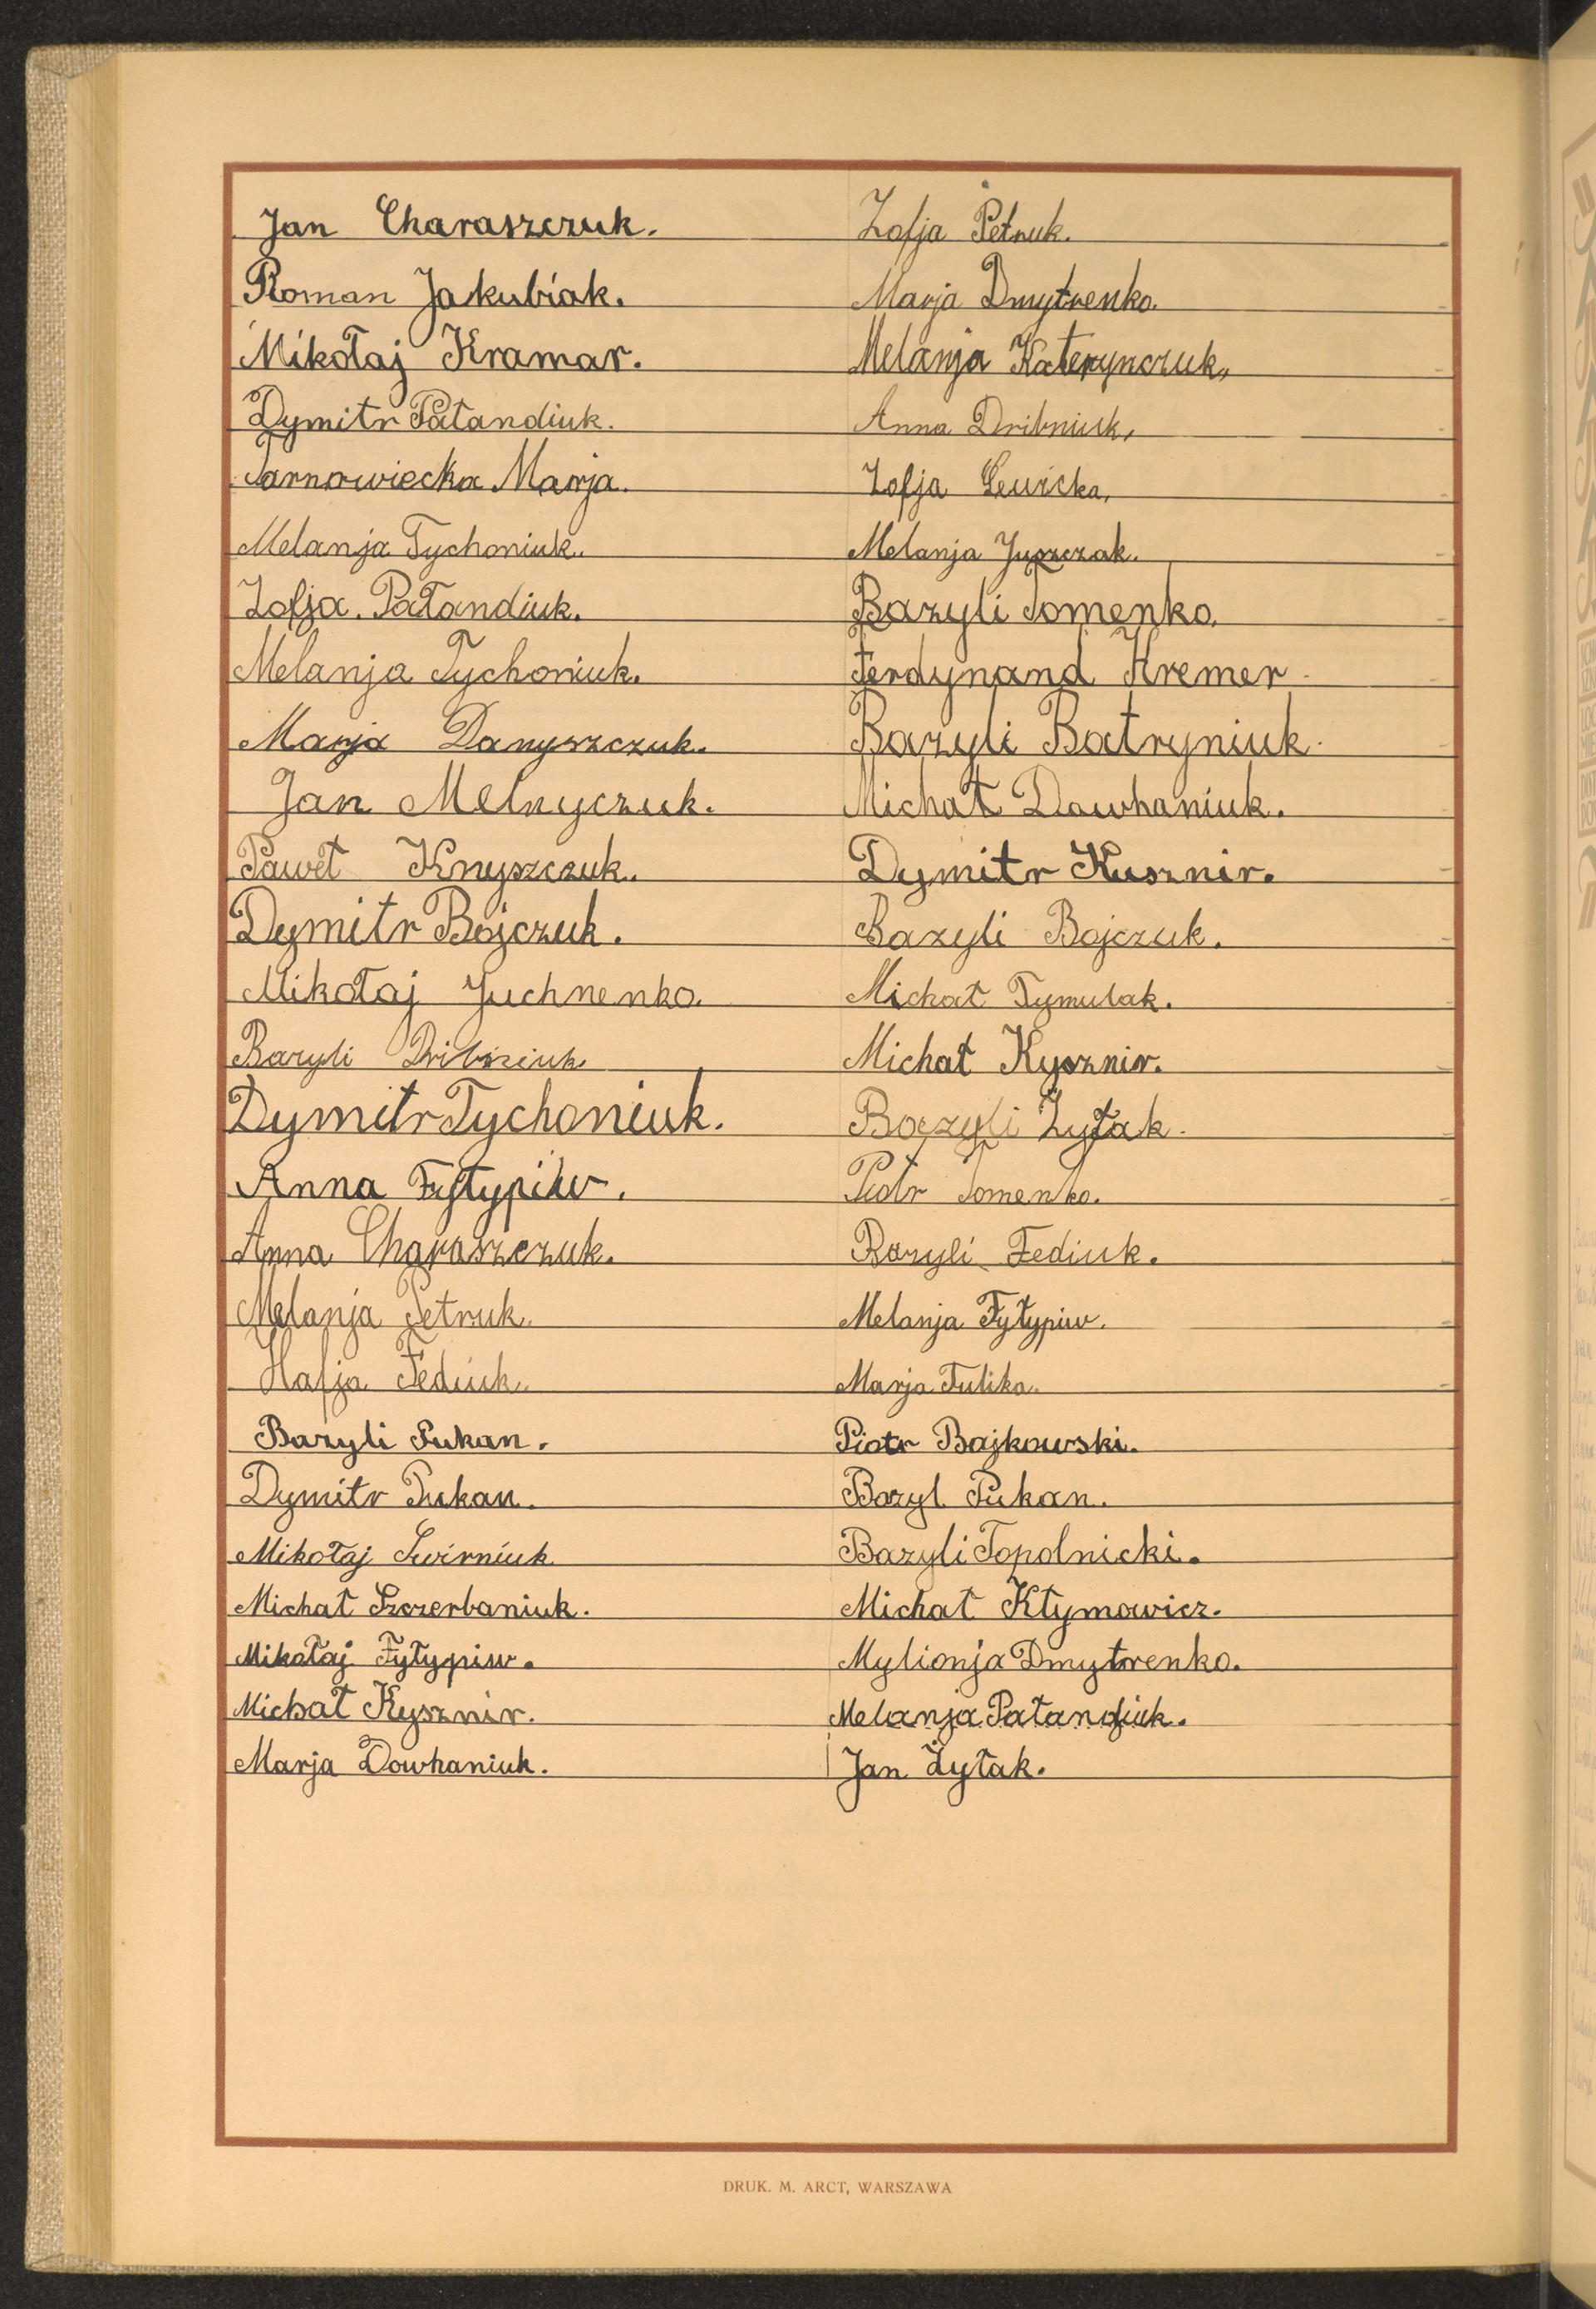 Jan Charaszczuk.
Roman Jakubiak.
Mikołaj Kramar.
Dymitr Pałandiuk.
Tarnawiecka Marja.
Melanja Tychoniuk.
Zofja. Pałandiuk.
Melanja Tychoniuk.
Marja Danyszczuk.
Jan Melnyczuk.
Paweł Knyszczuk.
Dymitr Bojczuk.
Mikołaj Juchnenko.
Bazyli Dribniuk
Dymitr Tychoniuk.
Anna Fyłypiw.
Anna Charaszczuk.
Melanja Petruk.
Hafja Fediuk.
Bazyli Pukan.
Dymitr Pukan.
Mikołaj Swirniuk
Michał Szczerbaniuk.
Mikołaj Fyłypiw.
Michał Kysznir.
Marja Dowhaniuk.
Zofja Petruk.
Marja Dmytrenko.
Melanja Katerynczuk.
Anna Dribniuk.
Zofja Lewicka.
Melanja Juszczak.
Bazyli Tomenko.
Ferdynand Kremer
Bazyli Batryniuk.
Michał Dowhaniuk.
Dymitr Kusznir.
Bazyli Bojczuk.
Michał Tymulak.
Michał Kysznir.
Bazyli Zytak.
Piotr Tomenko.
Bazyli Fediuk.
Melanja Fyłypiw.
Marja Tulika.
Piotr Bajkowski.
Bazyl Pukan.
Bazyli Topolnicki.
Michał Kłymowicz.
Mylionja Dmytrenko.
Melanja Pałandiuk.
Jan Żytak.
DRUK. M. ARCT, WARSZAWA